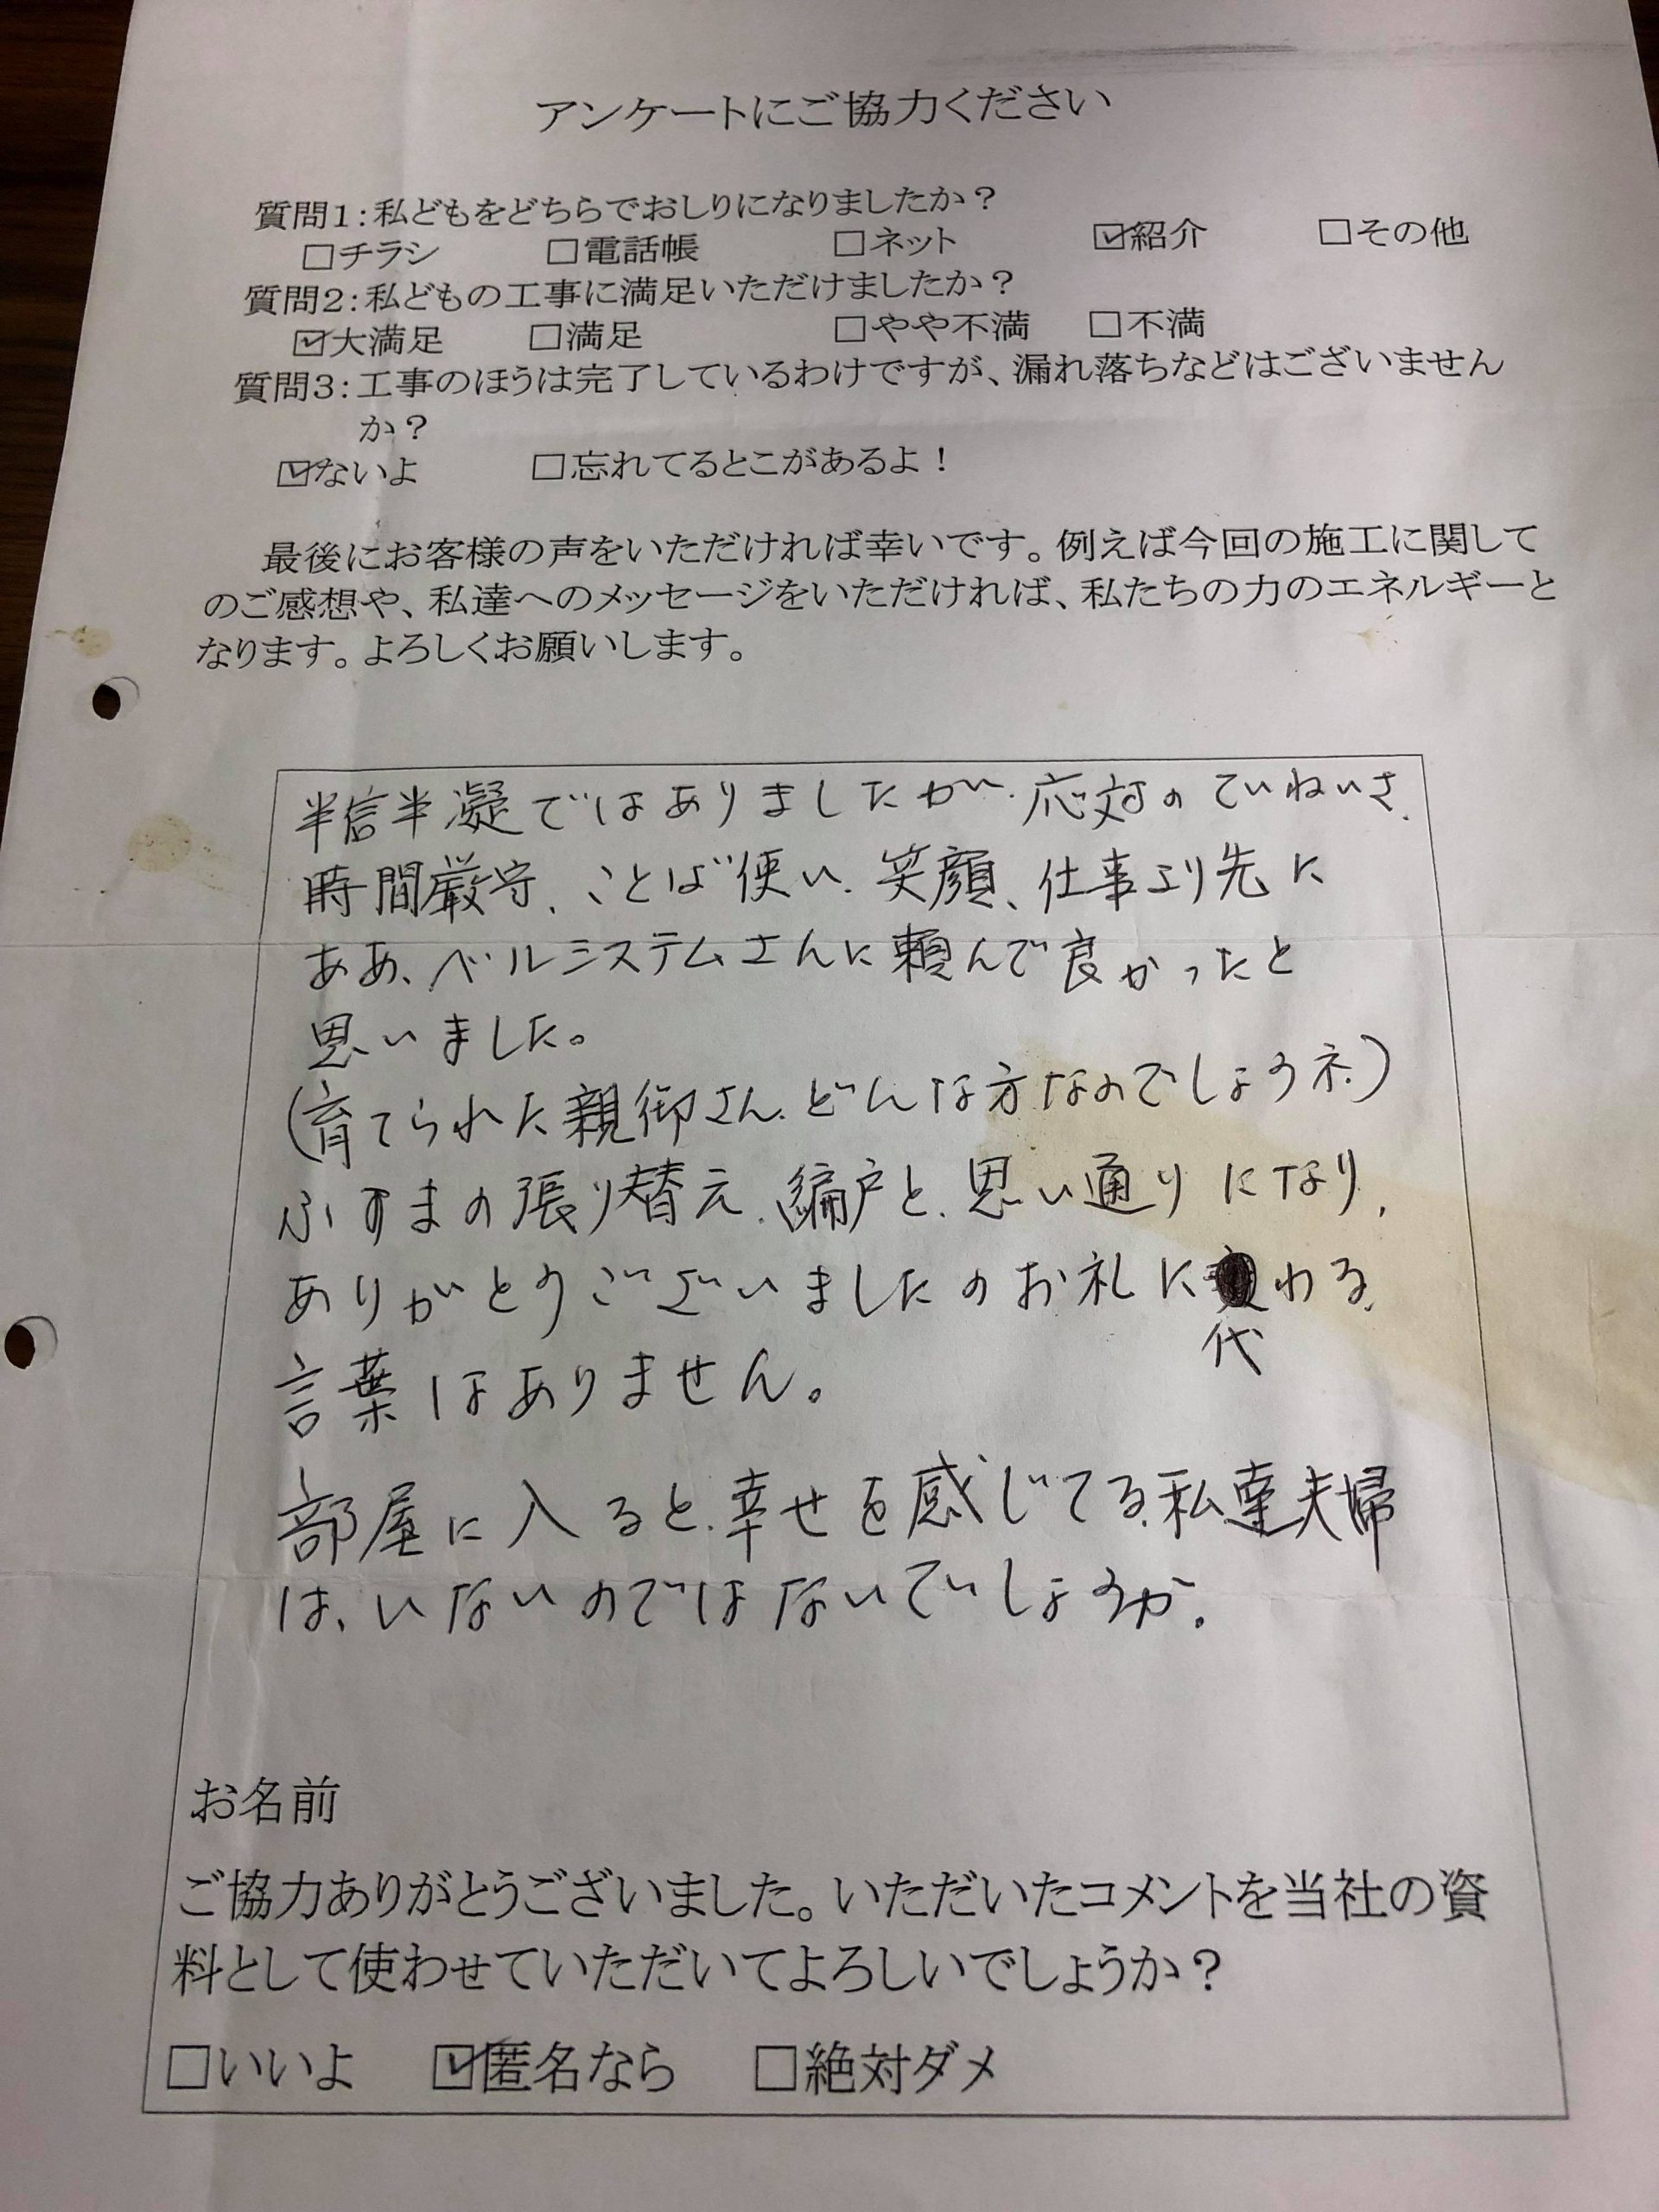 アンケートにご協力ください
質問1:私どもをどちらでおしりになりましたか？
□チラシ　□電話帳　□ネット　☑紹介　□その他
質問2:私どもの工事に満足いただけましたか？
☑大満足　□満足　□やや不満　□不満
質問3:工事のほうは完了しているわけですが、漏れ落ちなどはございません
か？
☑ないよ　□忘れてるとこがあるよ！
最後にお客様の声をいただければ幸いです。例えば今回の施工に関して
のご感想や、私達へのメッセージをいただければ、私たちの力のエネルギーと
なります。よろしくお願いします。
半信半凝ではありましたが、応対のていねいさ、
時間厳守、ことば使い、笑顔、仕事より先に
ああ、ベルシステムさんに頼んで良かったと
思いました。
(育てられた親御さん、どんな方なのでしょうネ.)
ふすまの張り替え、編戸と、思い通りになり、
ありがとうございましたのお礼に代わる、
言葉はありません。
部屋に入ると、幸せを感じてる、私達夫婦
は、いないのではないでしょうか。
お名前
ご協力ありがとうございました。いただいたコメントを当社の資
料として使わせていただいてよろしいでしょうか？
□いいよ　☑匿名なら　□絶対ダメ